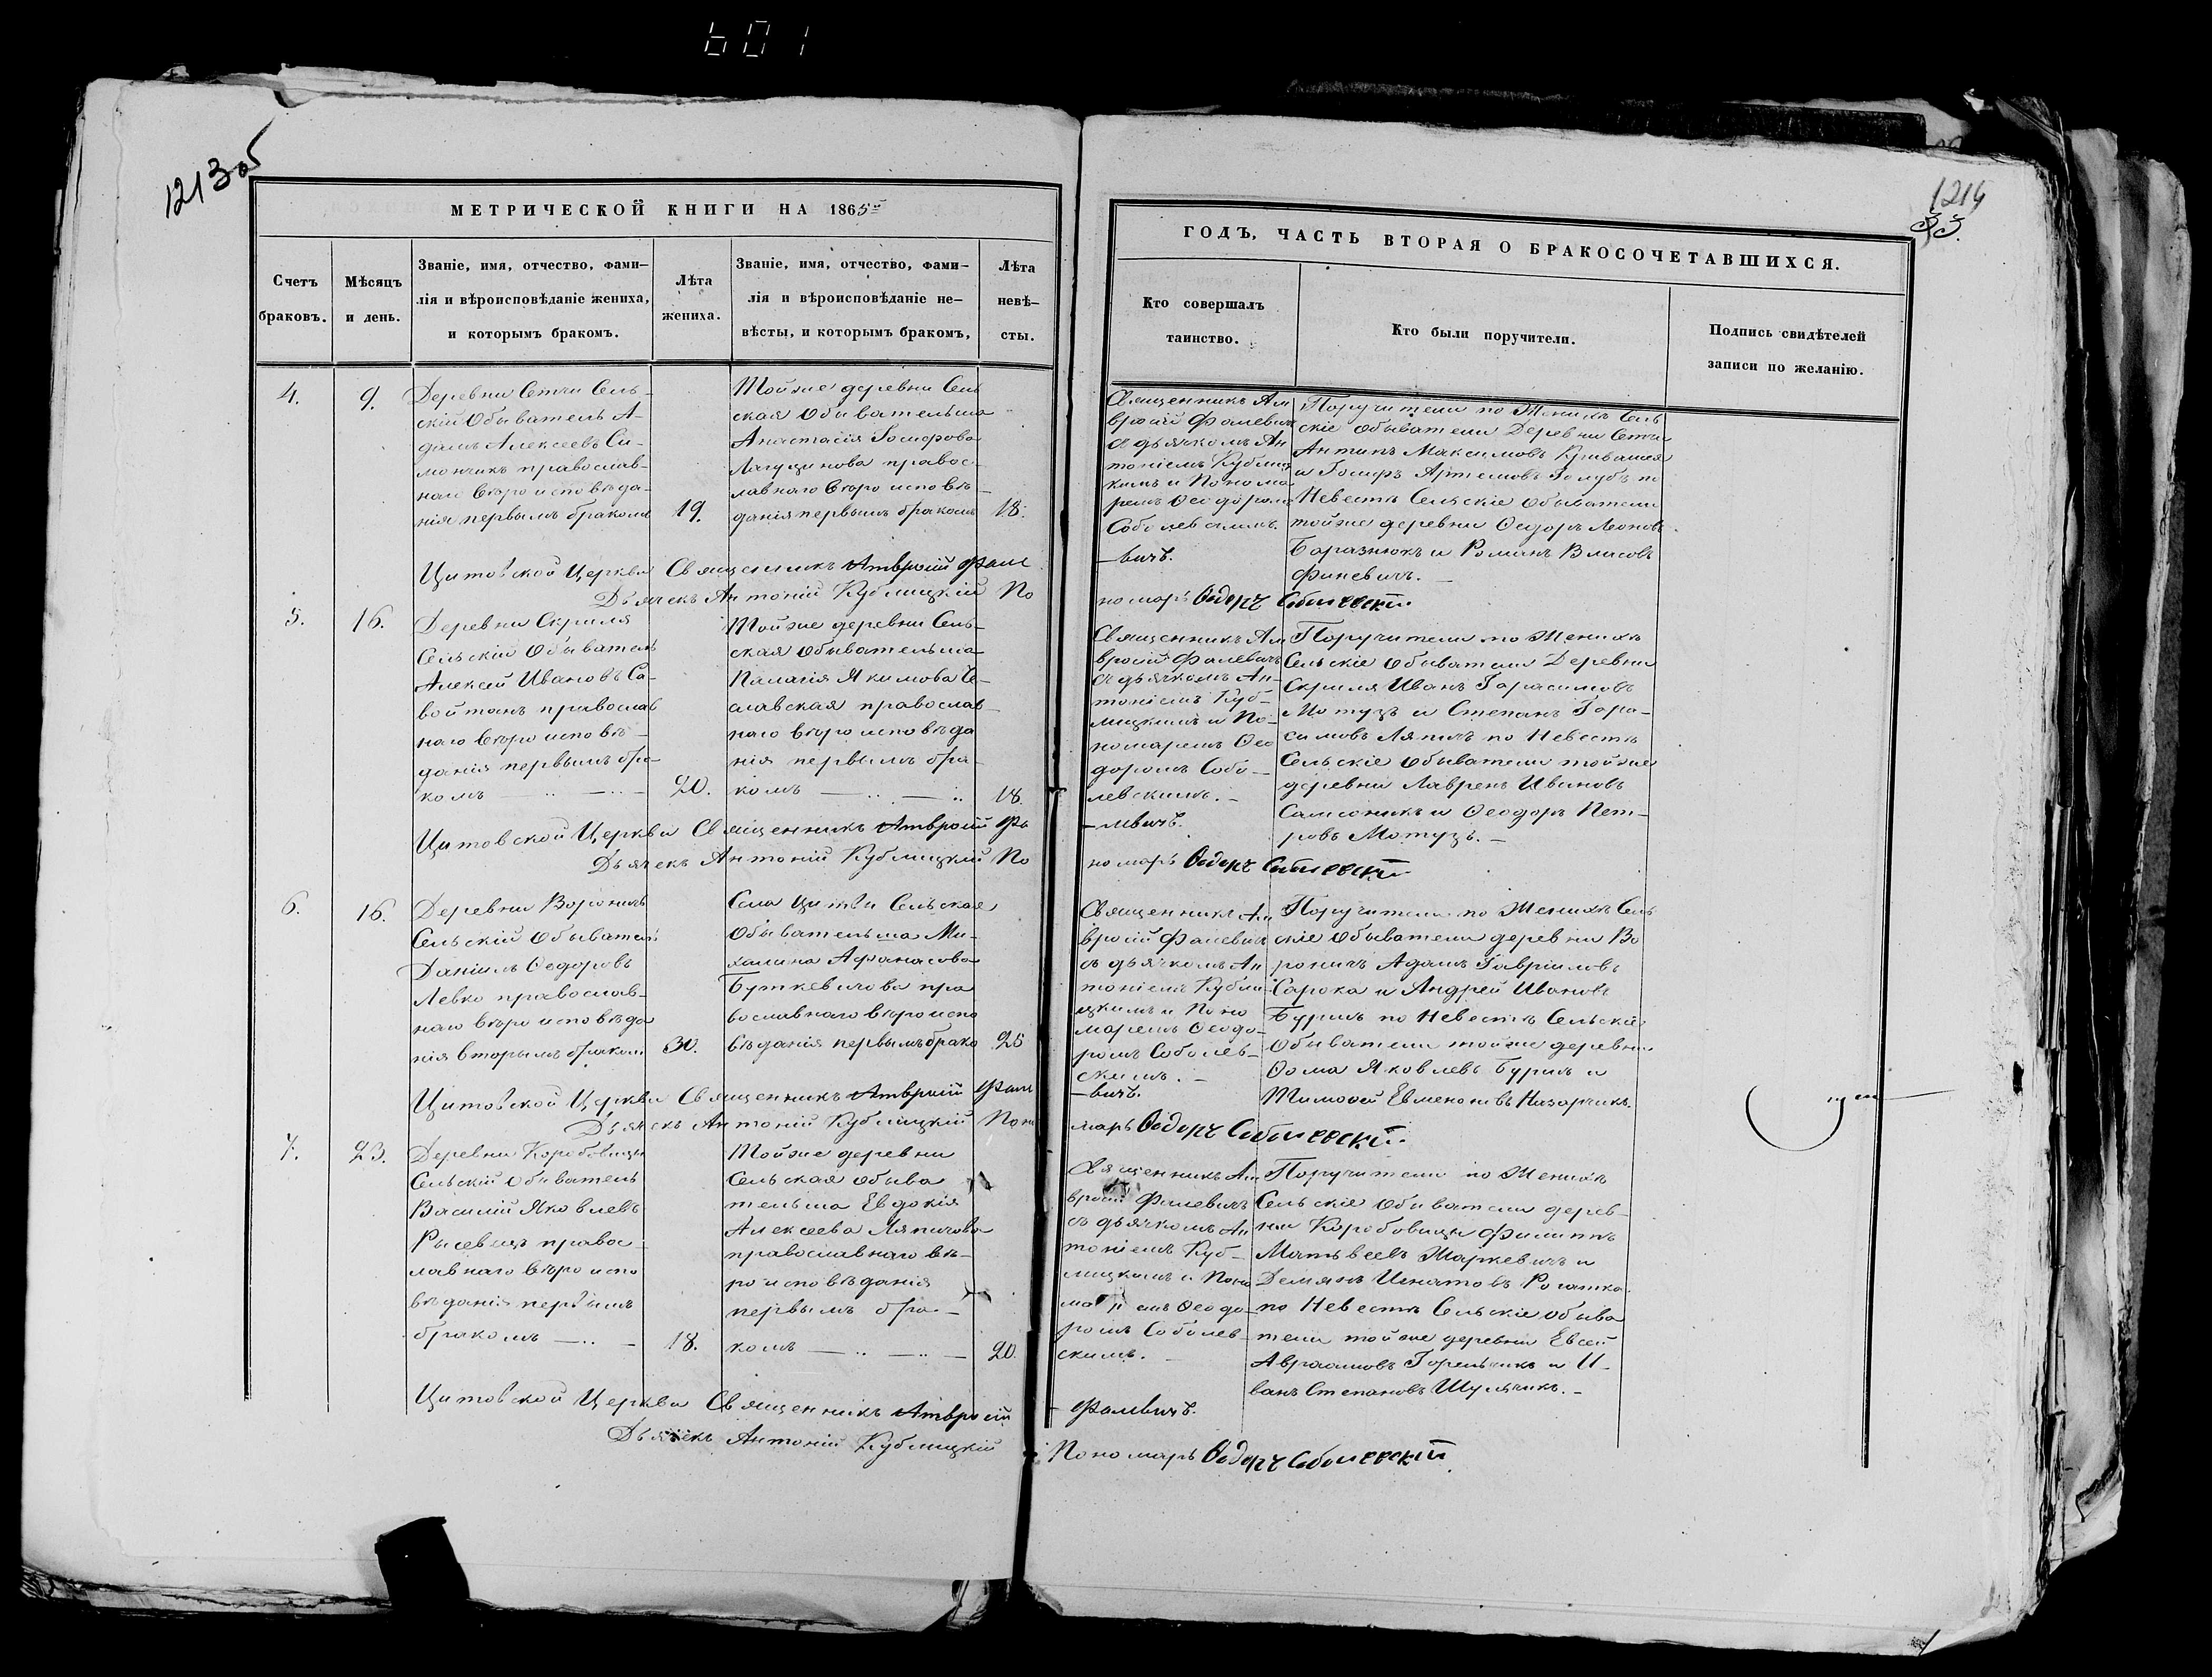 601
1213 об
МЕТРИЧЕСКОЙ КНИГИ НА 1865й
Счетъ браковъ.
Мѣсяцъ и день.
Званіе, имя, отчество, фами-
лія и вѣроисповѣданіе жениха,
и которымъ бракомъ.
Лѣта жениха.
Званіе, имя, отчество, фами-
лія и вѣроисповѣданіе не-
вѣсты, и которымъ бракомъ,
Лѣта невѣ-
сты.
4.
9.
Деревни Сетчи Сель-
скій Обыватель А-
дамъ Алексеевъ Си-
мончикъ православ-
наго вѣроисповѣда-
нія первымъ бракомъ
19.
Тойже деревни Сель
ская Обывательша
Анастасія Госифова
Лагуцинова правос-
лавнаго вѣроисповѣ-
данія первымъ бракомъ
18.
Цитовской Церкви Священникъ Амвросій Фале
Дьячекъ Антоній Кублицкій По
5.
16.
Деревни Скриля
Сельскій Обыватель
Алексей Ивановъ Са-
войтанъ православ
наго вѣроисповѣ-
данія первымъ бра-
комъ
20.
Тойже деревни Сель-
ская Обывательша
Палагія Якимова Че-
славская православ-
наго вѣроисповѣда
нія первымъ бра-
комъ
18.
Цитовской Церкви Священникъ Амвросій Фа
Дьячекъ Антоній Кублицкій По
6.
16.
Деревни Вороничъ
Сельскій Обыватель
Даніилъ Ѳедоровъ
Левко православ-
наго вѣроисповѣда
нія вторымъ бракомъ
30.
Села Цитви Сельская
Обывательша Ми-
халина Афанасова
Буткевичова пра
вославнаго вѣроиспо
вѣданія первымъ брако
25
Цитовской Церкви Священникъ Амвросій Фале
Дьячекъ Антоній Кублицкій Поно
7.
23.
Деревни Коробовцы
Сельскій Обыватель
Василій Яковлевъ
Рысевецъ правос-
лавнаго вѣроиспо
вѣданія первымъ
бракомъ
18.
Тойже деревни
Сельская обыва
тельша Евдокія
Алексеева Ляпичова
православнаго вѣ-
роисповѣданія
первымъ бра-
комъ
20.
Цитовской Церкви Священникъ Амвросій
Дьячекъ Антоній Кублицкій
1214
33.
ГОДЪ, ЧАСТЬ ВТОРАЯ О БРАКОСОЧЕТАВШИХСЯ.
Кто совершалъ
таинство.
Кто были поручители.
Подпись свидѣтелей
записи по желанію.
Священникъ Ам
вросій Фалевичъ
съ дьячкомъ Ан
тоніемъ Кублиц
кимъ и Понома
ремъ Ѳеодоромъ
Соболевскимъ.
-вичъ.
Поручители по Женихѣ Сель
скіе обыватели Деревни Сетчи
Антипъ Максимовъ Кривашея
и Госифъ Артемовъ Голубъ по
Невестѣ Сельскіе Обыватели
тойже деревни Ѳедоръ Леоновъ
Боразнюкъ и Романъ Власовъ
Финевичъ.
номарь Ѳедоръ Соболевскій.
Священникъ Ам
вросій Фалевичъ
съ дьячкомъ Ан-
тоніемъ Куб-
лицкимъ и По-
номаремъ Ѳео
доромъ Собо-
левскимъ.
-левичъ.
Поручители по Женихѣ
Сельскіе Обыватели Деревни
Скриля Иванъ Гарасимовъ
Мотузъ и Степанъ Гара-
симовъ Ляпичъ по Невестѣ
Сельскіе Обыватели тойже
деревни Лавренъ Ивановъ
Самсоникъ и Ѳеодоръ Пет-
ровъ Мотузъ.
номарь Ѳедоръ Соболевскій
Священникъ Ам
вросій Фалевичъ
съ дьячкомъ Ан
тоніемъ Кубли-
цкимъ и Поно
маремъ Ѳеодо-
ромъ Соболев-
скимъ.
-вичъ.
Поручители по Женихѣ Сель
скіе Обыватели деревни Во
роничъ Адамъ Гавріиловъ
Сорока и Андрей Ивановъ
Буримъ по Невестѣ Сельскіе
Обыватели тойже деревни
Ѳома Яковлевъ Буримъ и
Тимоѳей Евменовъ Назарчикъ.
марь Ѳедоръ Соболевскій.
Священникъ Ам
вросій Фалевичъ
съ дьячкомъ Ан
тоніемъ Куб-
лицкимъ и Поно
маремъ Ѳеодо-
ромъ Соболев-
скимъ.
Поручители по Женихѣ
Сельскіе Обыватели дерев-
ни Коробовцы Филиппъ
Матвѣевъ Жаркевичъ и
Демянъ Игнатовъ Рогатка
по Невестѣ Сельскіе обыва
тели тойже деревни Евсей
Авраамовъ Горельчикъ и И-
ванъ Степановъ Шулячикъ.
- Фалевичъ.
Пономарь Ѳедоръ Соболевскій